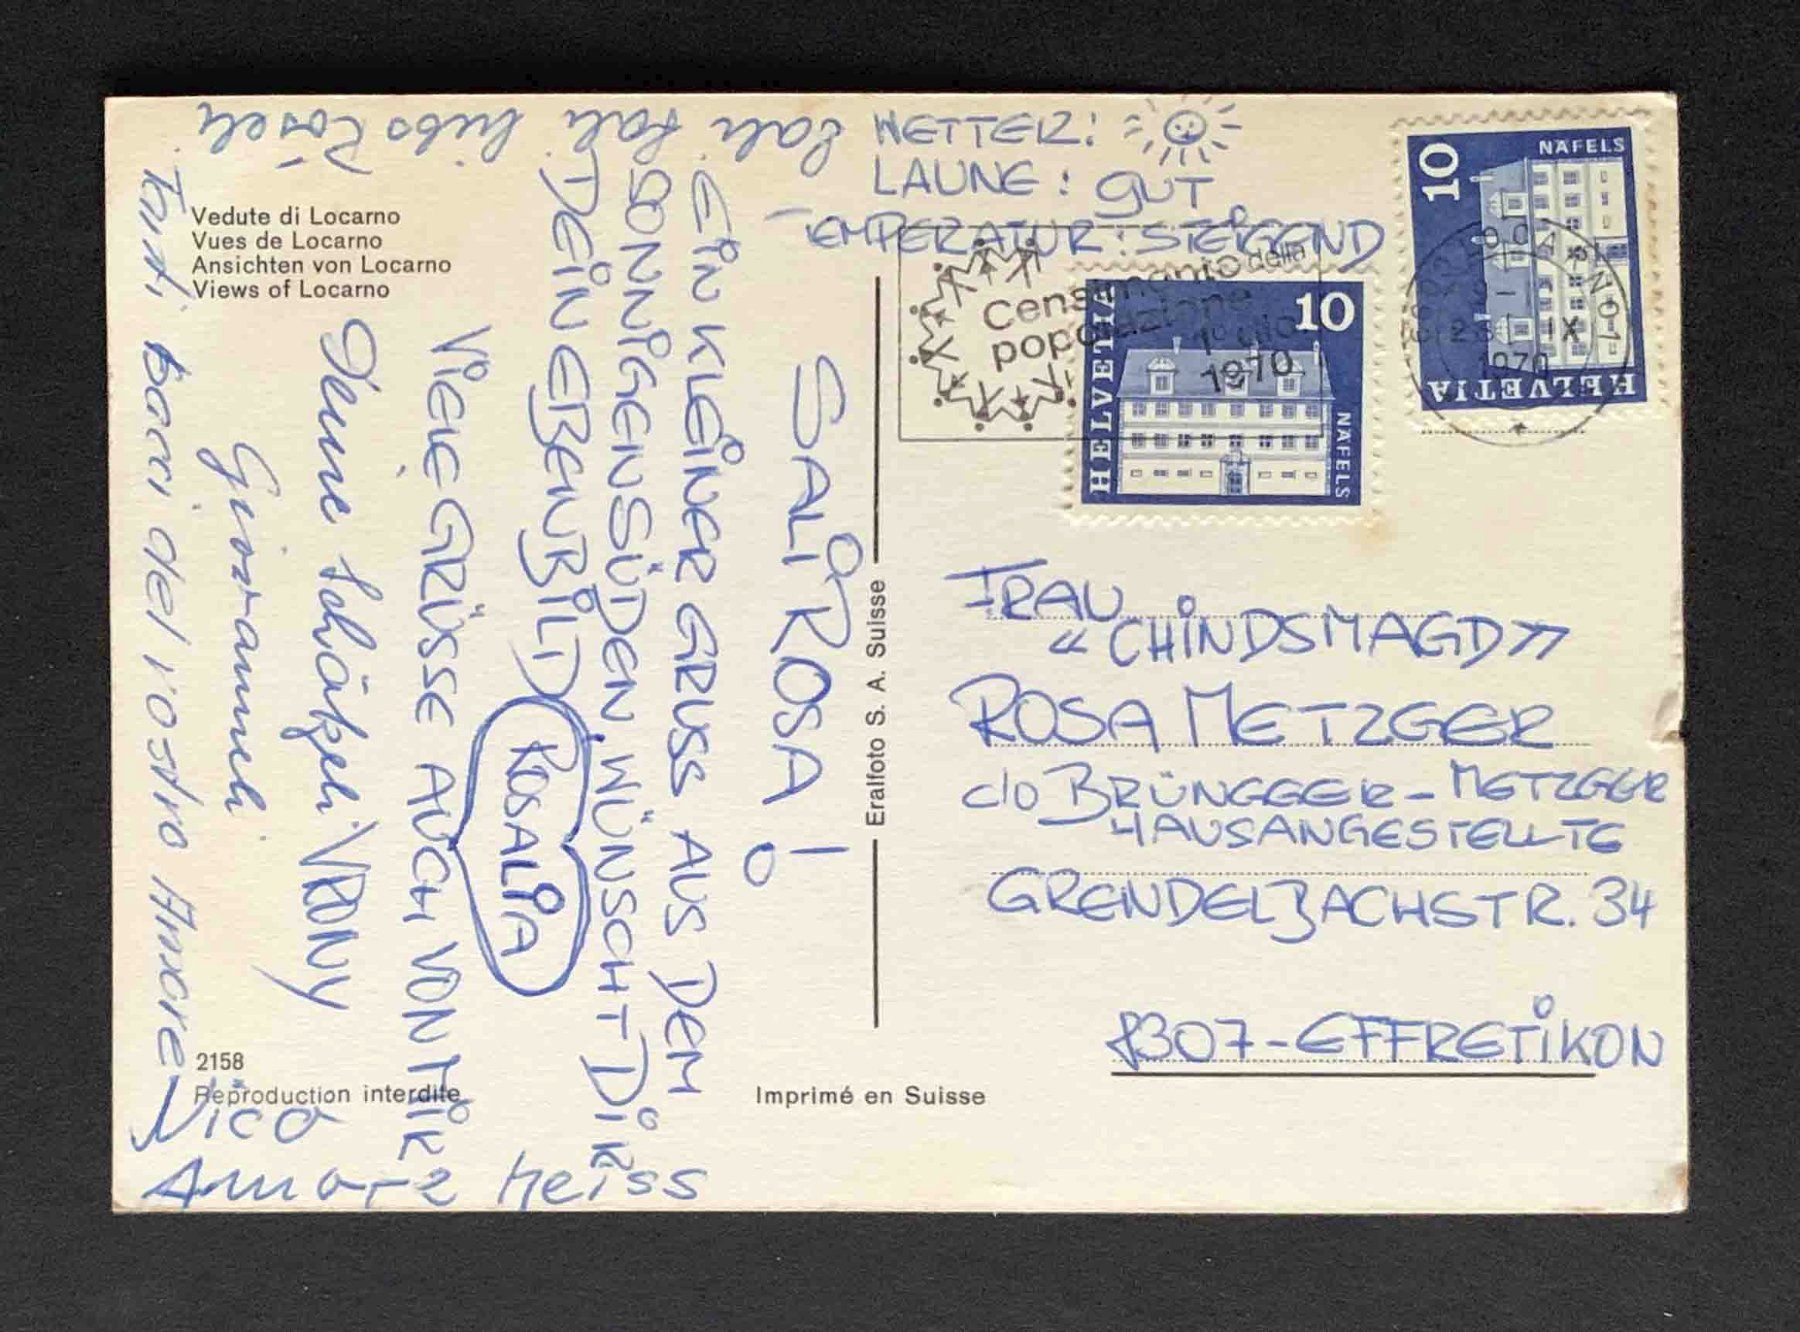 WETTER:
LAUNE: GUT
TEMPERATUR: STEIGEND
Sali Sali Sali liebs Röseli
SALI ROSA!
EIN KLEINER GRUSS AUS DEM
SONNIGEN SÜDEN, WÜNSCHT DIR
DEIN EBENBILD ROSALIA
ROSALIA
VIELE GRÜSSE AUCH VON MIK
Deine Schätzeli VRONY
Tanti bacci del vostro Amore
Nico
Amore heiss
Vedute di Locarno
Vues de Locarno
Ansichten von Locarno
Views of Locarno
2158
Reproduction interdite
Imprimé en Suisse
Eralfoto S. A. Suisse
Censimento della
popolazione
1970
10
HELVETIA
NÄFELS
10
HELVETIA
NÄFELS
LOCARNO 1
IX
1970
FRAU
«CHINDSMAGD»
ROSA METZGER
c/o BRÜNGGER-METZGER
HAUSANGESTELLTE
GRENDELBACHSTR. 34
8307-EFFRETIKON